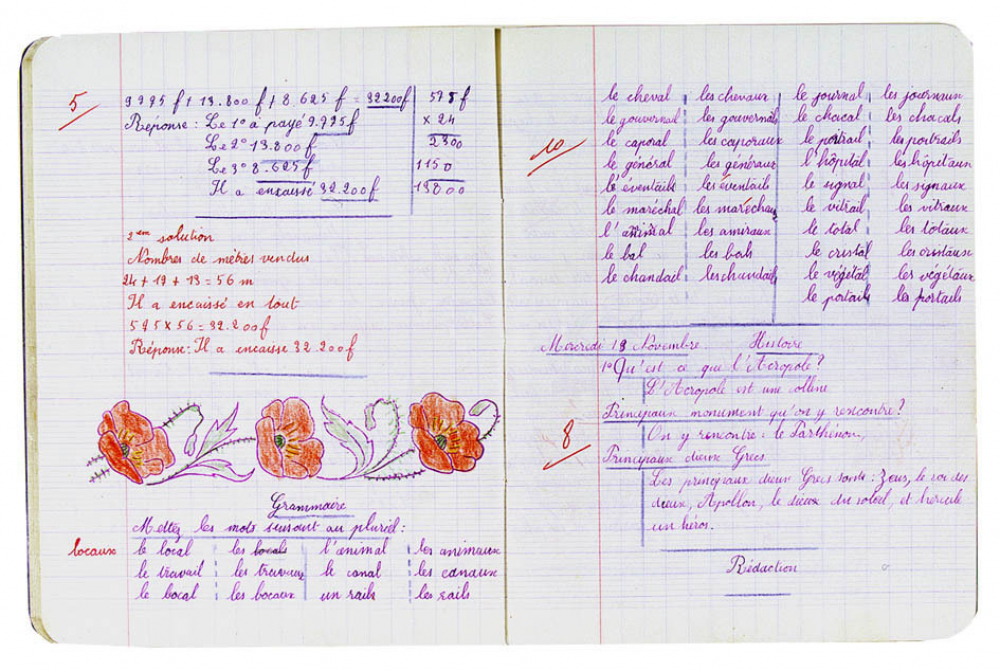 5
9.775 f + 13.800 f + 8.625 f = 32200f
575 f
Réponse: Le 1° a payé 9.775 f
× 24
Le 2° 13.800 f
2300
Le 3° 8.625 f
1150
Il a encaissé 32.200 f
13800
2em solution
Nombres de mètres vendus
24 + 19 + 13 = 56 m
Il a encaissé en tout
575 x 56 = 32.200f
Réponse: Il a encaissé 32 200 f
Grammaire
Mettez les mots suivant au pluriel:
locaux le local les locals l'animal les animaux
le travail les travaux le canal les canaux
le bocal les bocaux un rails les rails
le cheval les chevaux le journal les journaux
le gouvernail les gouvernails le chacal les chacals
10
le caporal les caporaux le portrail les portrails
le général les généraux l'hôpital les hôpitaux
l'éventails les éventails le signal les signaux
le maréchal les maréchaux le vitrail les vitraux
l'amiral les amiraux le total les totaux
le bal les bals le cristal les cristaux
le chandail les chandails le végétal les végétaux
le portails les portails
Mercredi 18 Novembre Histoire
1° Qu'est ce que l'Acropole?
L'Acropole est une colline
Principaux monument qu'on y rencontre?
8
On y rencontre: le Parthénon,
Principaux dieux Grecs
Les principaux dieux Grecs sont: Zeus, le roi des
dieux, Apollon, le dieux du soleil, et hercule
un héros.
Rédaction